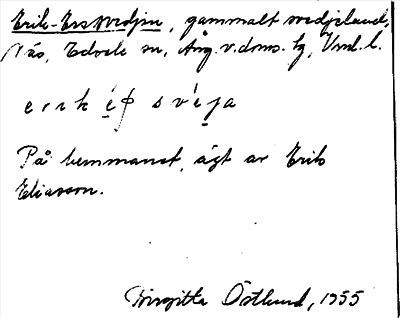 Erik-Erssvedjan, gammalt svedjeland,
Näs, Edsele sn, Ång. v. doms. tg, Vnl. l.
e r ı k é ʃ s v é j a
På hemmanet, ägt av Erik
Eliasson.
Birgitta Östlund, 1955